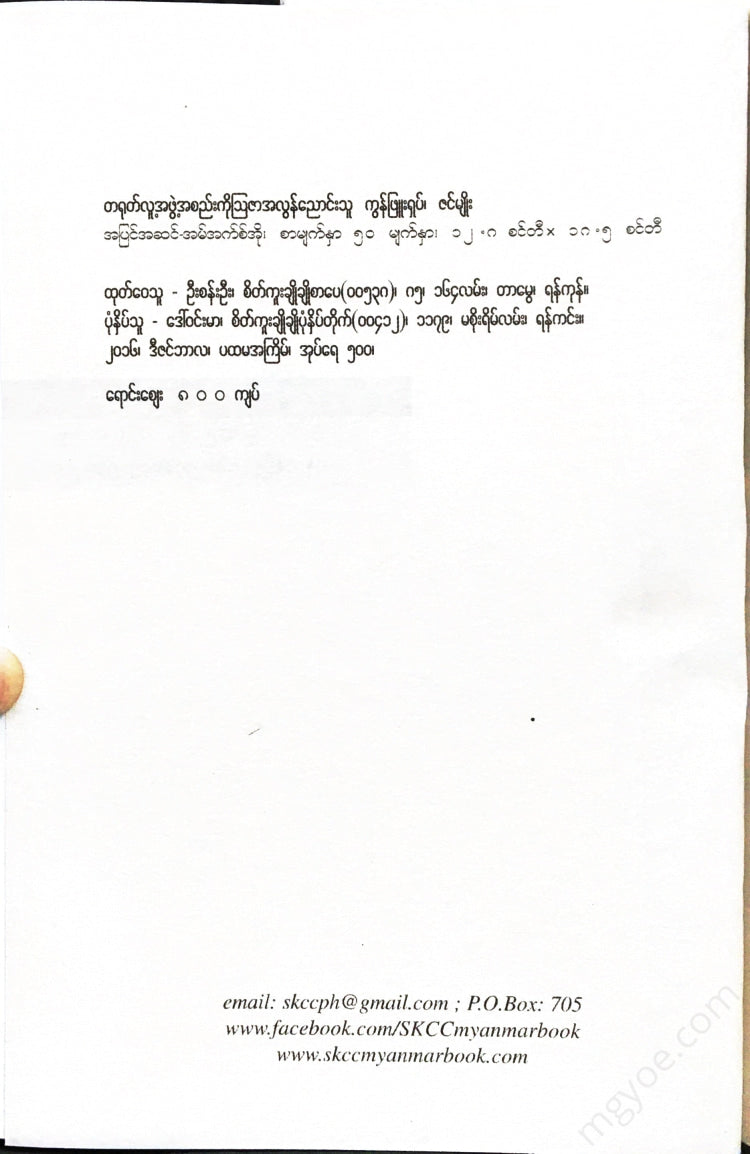 တရုတ်လူ့အဖွဲ့အစည်းကိုဩဇာအလွန်ညောင်းသူ ကွန်ဖြူးရှပ်၊ ဇင်မျိုး
အပြင်အဆင်-အမ်အက်စ်အို၊ စာမျက်နှာ ၅၀ မျက်နှာ၊ ၁၂.၈ စင်တီ× ၁၈.၅ စင်တီ
ထုတ်ဝေသူ - ဦးစန်းဦး၊ စိတ်ကူးချိုချိုစာပေ(၀၀၅၃၈)၊ ၈၅၊ ၁၆၄လမ်း၊ တာမွေ၊ ရန်ကုန်။
ပုံနှိပ်သူ - ဒေါ်ဝင်းမာ၊ စိတ်ကူးချိုချိုပုံနှိပ်တိုက်(၀၀၄၁၂)၊ ၁၁၇၉၊ မစိုးရိမ်လမ်း၊ ရန်ကင်း။
၂၀၁၆၊ ဒီဇင်ဘာလ၊ ပထမအကြိမ်၊ အုပ်ရေ ၅၀၀၊
ရောင်းဈေး ၈ ၀ ၀ ကျပ်
email: skccph@gmail.com ; P.O.Box: 705
www.facebook.com/SKCCmyanmarbook
www.skccmyanmarbook.com
mgyoe.com